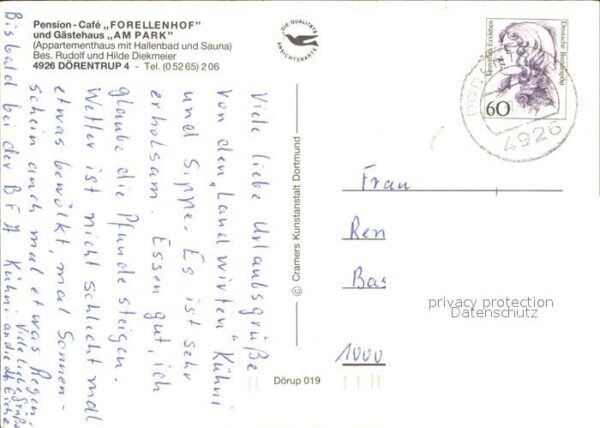 Pension - Café „FORELLENHOF"
und Gästehaus „AM PARK"
(Appartementhaus mit Hallenbad und Sauna)
Bes. Rudolf und Hilde Diekmeier
4926 DÖRENTRUP 4 - Tel. (0 52 65) 2 06
DIE QUALITÄTS
ANSICHTSKARTE
Deutsche Bundespost
60
4926
Viele liebe Urlaubsgrüße
von den „Landwirten" Kühni
und Sippe. Es ist sehr
erholsam. Essen gut, ich
glaube die Pfunde steigen.
Wetter ist nicht schlecht mal
etwas bewölkt, mal Sonnen-
schein auch mal etwas Regen.
Bis bald bei der BfA Kühni
Viele liebe Grüße
an die
© Cramers Kunstanstalt Dortmund
Dörup 019
Frau
Ren
Bas
1000
privacy protection
Datenschutz